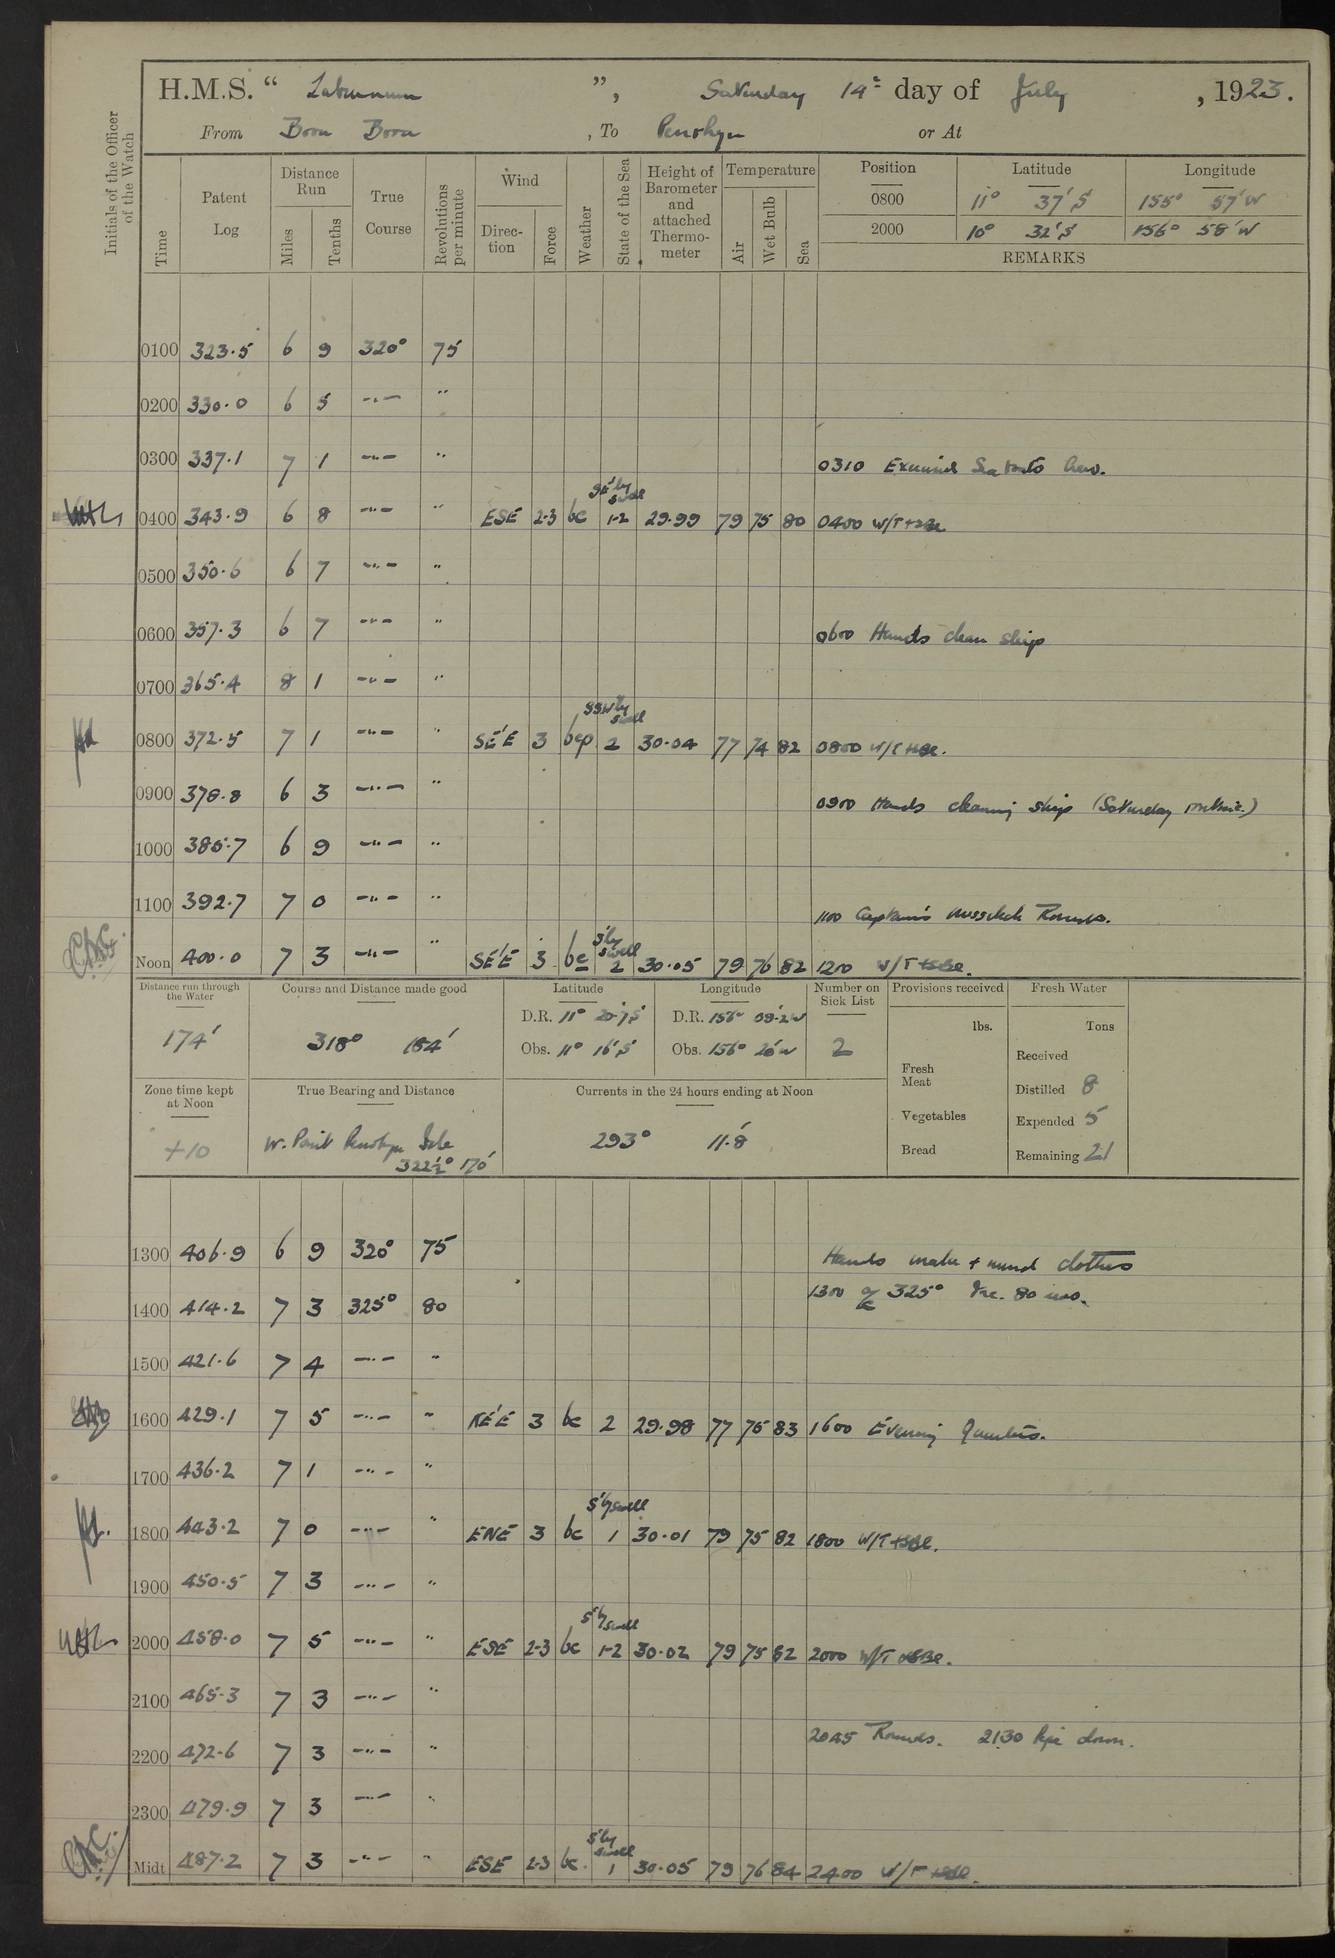 H.M.S. “ Laburnum ”, Saturday 14th day of July , 1923.
From Bora Bora , To Penrhyn or At
Initials of the Officer of the Watch
Time Patent Log Distance Run Miles Tenths True Course Revolutions per minute Wind Direction Force Weather State of the Sea Height of Barometer and attached Thermometer Temperature Air Wet Bulb Sea
Position Latitude Longitude
0800 11° 37' S 155° 57' W
2000 10° 32' S 156° 58' W
REMARKS
0100 323.5 6 9 320° 75
0200 330.0 6 5 -"- "
0300 337.1 7 1 -"- " 0310 Examined Seaboats Crew.
SE'ly swell
0400 343.9 6 8 -"- " ESE 2-3 bc 1-2 29.99 79 75 80 0400 W/T
0500 350.6 6 7 -"- "
0600 357.3 6 7 -"- " 0600 Hands clean ship
0700 365.4 8 1 -"- "
SSW'ly swell
0800 372.5 7 1 -"- " SE'E 3 bcp 2 30.04 77 74 82 0800 W/T
0900 378.8 6 3 -"- " 0900 Hands cleaning ship (Saturday routine.)
1000 385.7 6 9 -"- "
1100 392.7 7 0 -"- " 1100 Captain's Rounds.
S'ly swell
Noon 400.0 7 3 -"- " SE'E 3 bc 2 30.05 79 76 82 1200 W/T
Distance run through the Water Course and Distance made good Latitude Longitude Number on Sick List Provisions received Fresh Water
174' 318° 184' D.R. 11° 20.7' S D.R. 156° 09.2' W 2 lbs. Tons
Obs. 11° 16' S Obs. 156° 20' W Fresh Meat Received
Zone time kept at Noon True Bearing and Distance Currents in the 24 hours ending at Noon Distilled 8
+10 W. Point Penrhyn Isle 293° 11.8' Vegetables Expended 5
322½° 170' Bread Remaining 21
1300 406.9 6 9 320° 75 Hands make + mend clothes
1400 414.2 7 3 325° 80 1300 a/c 325° Inc. 80 revs.
1500 421.6 7 4 -"- "
1600 429.1 7 5 -"- " NE'E 3 bc 2 29.98 77 75 83 1600 Evening Quarters.
1700 436.2 7 1 -"- "
S'ly swell
1800 443.2 7 0 -"- " ENE 3 bc 1 30.01 79 75 82 1800 W/T
1900 450.5 7 3 -"- "
S'ly swell
2000 458.0 7 5 -"- " ESE 2-3 bc 1-2 30.02 79 75 82 2000 W/T
2100 465.3 7 3 -"- "
2200 472.6 7 3 -"- " 2045 Rounds. 2130 Pipe down.
2300 479.9 7 3 -"- "
S'ly swell
Midt 487.2 7 3 -"- " ESE 2-3 bc. 1 30.05 79 76 84 2400 W/T